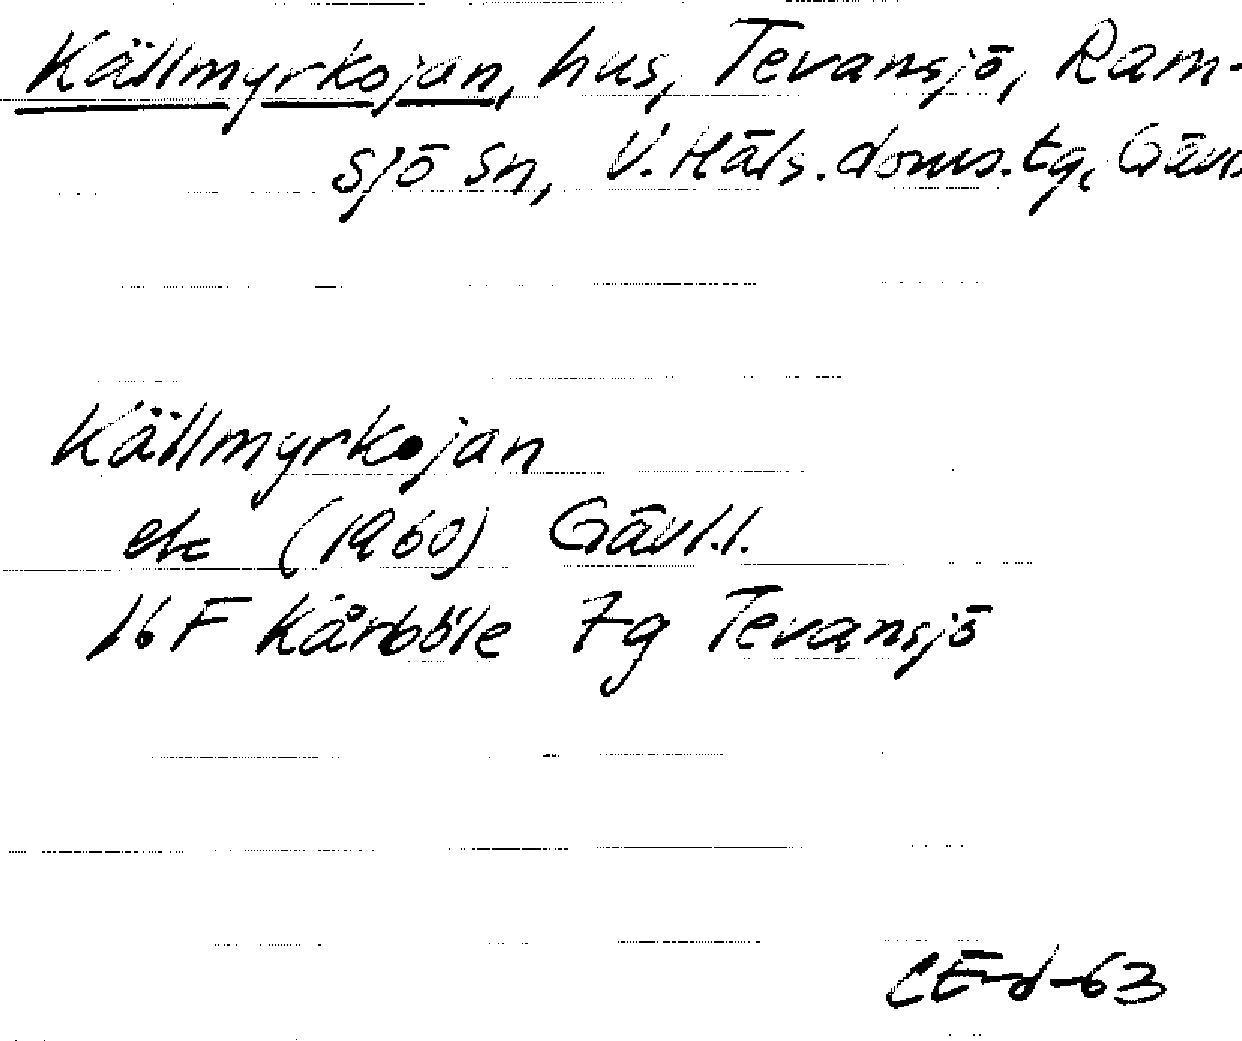 Källmyrkojan, hus, Tevansjö, Ram-
sjö sn, V. Häls. doms. tg, Gävl
Källmyrkojan
ek (1960) Gävl.l.
16 F Kårböle 7g Tevansjö
CE-d-63